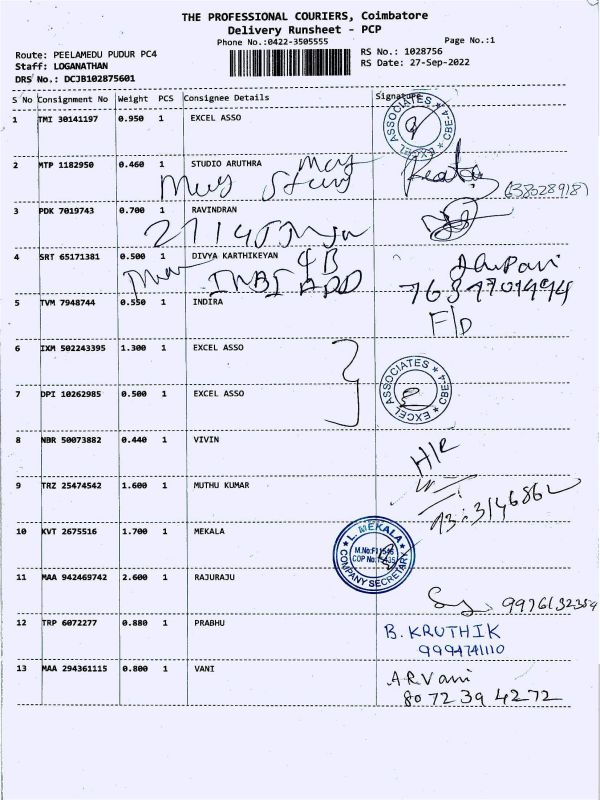 THE PROFESSIONAL COURIERS, Coimbatore
Delivery Runsheet - PCP
Phone No.:0422-3505555
Page No.:1
Route: PEELAMEDU PUDUR PC4
Staff: LOGANATHAN
DRS No.: DCJB102875601
RS No.: 1028756
RS Date: 27-Sep-2022
S No Consignment No Weight PCS Consignee Details Signature
1 TMI 30141197 0.950 1 EXCEL ASSO
EXCEL ASSOCIATES ★ CBE-4 ★
2 MTP 1182950 0.460 1 STUDIO ARUTHRA
3 PDK 7019743 0.700 1 RAVINDRAN
4 SRT 65171381 0.500 1 DIVYA KARTHIKEYAN
5 TVM 7948744 0.550 1 INDIRA
F/D
6 IXM 502243395 1.300 1 EXCEL ASSO
7 DPI 10262985 0.500 1 EXCEL ASSO
EXCEL ASSOCIATES ★ CBE-4 ★
8 NBR 50073882 0.440 1 VIVIN
H/R
9 TRZ 25474542 1.600 1 MUTHU KUMAR
10 KVT 2675516 1.700 1 MEKALA
L. MEKALA
COMPANY SECRETARY
11 MAA 942469742 2.600 1 RAJURAJU
12 TRP 6072277 0.880 1 PRABHU
B. KRUTHIK
9994741110
13 MAA 294361115 0.800 1 VANI
A R Vani
80 72 39 4272